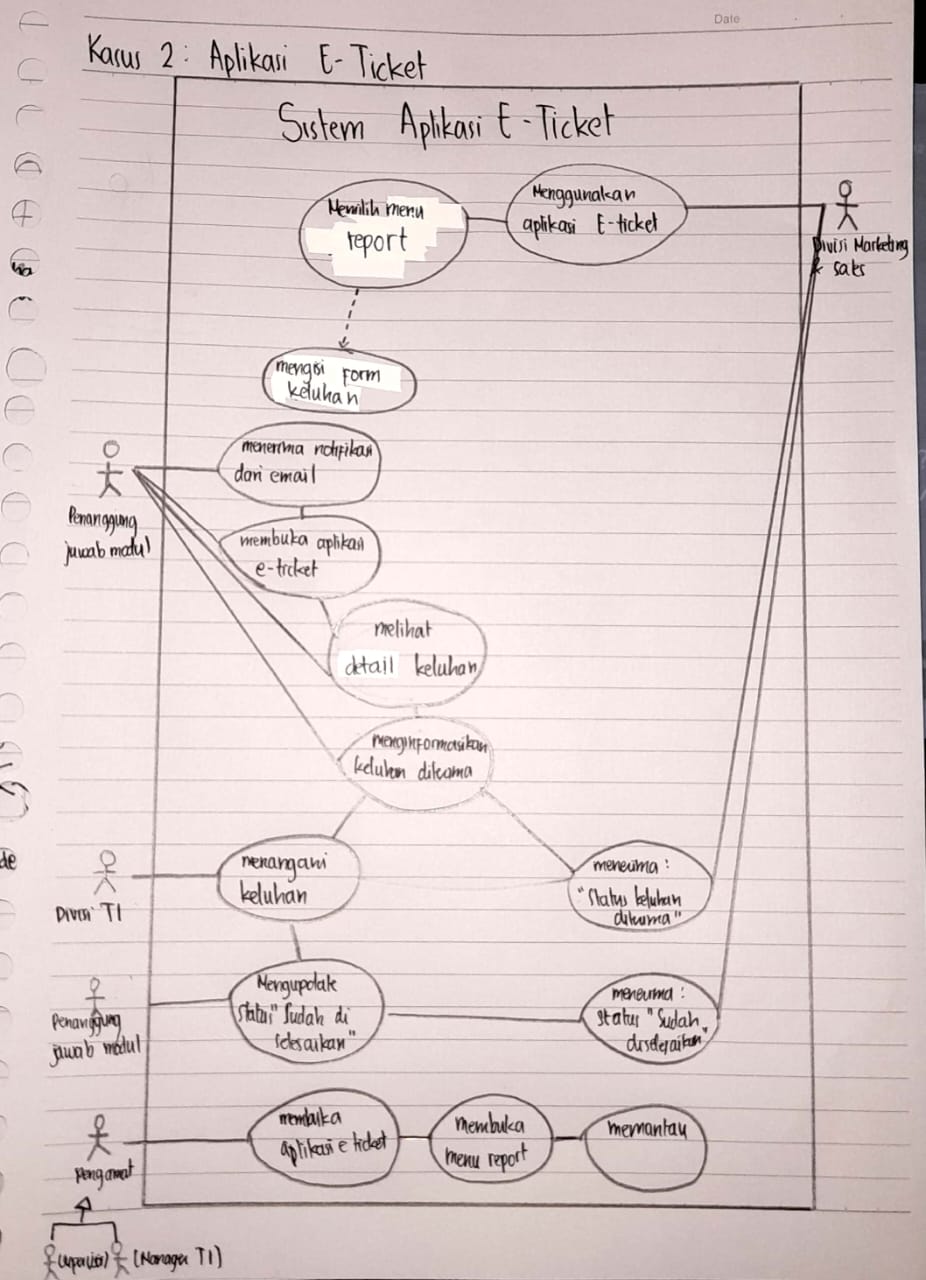 Date
Kasus 2: Aplikasi E-Ticket
Sistem Aplikasi E-Ticket
Memilih menu
report
Menggunakan
aplikasi E-ticket
Divisi Marketing
& sales
mengisi form
keluhan
menerima notifikasi
dari email
Penanggung
jawab modul
membuka aplikasi
e-ticket
melihat
detail keluhan
menginformasikan
keluhan diterima
menangani
keluhan
Divisi TI
menerima :
"Status keluhan
diterima"
Mengupdate
Status "Sudah di
selesaikan"
Penanggung
jawab modul
menerima :
Status "Sudah
diselesaikan"
membuka
aplikasi e ticket
membuka
menu report
memantau
Pengamat
(Supervisi) (Manager TI)